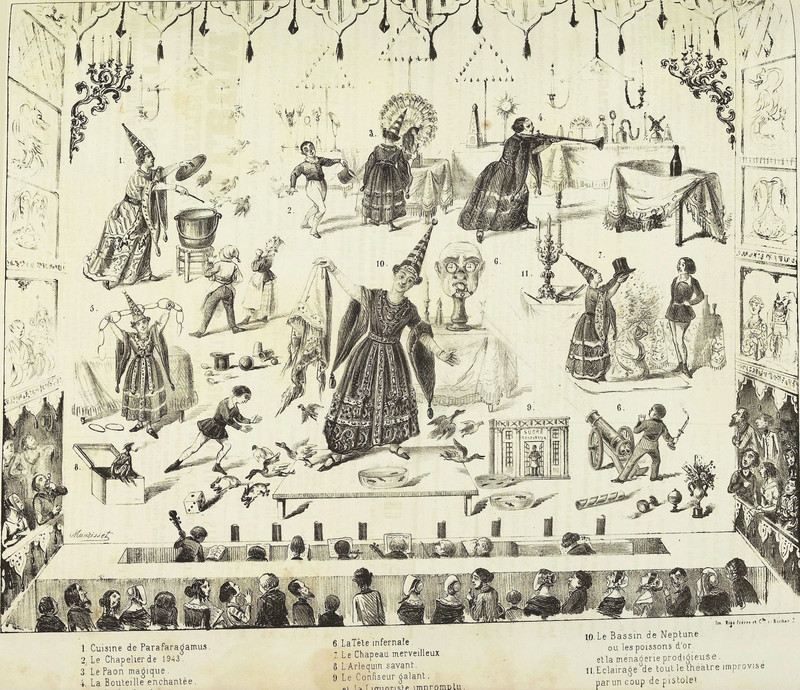 1.
2.
3.
5.
10.
6.
11.
7.
8.
9.
6.
SUCRÉ
Maurisset
1 Cuisine de Parafaragamus.
2. Le Chapelier de 1943.
3 Le Paon magique.
4. La Bouteille enchantée.
6 La Tête infernale
7 Le Chapeau merveilleux
8 L'Arlequin savant.
9 Le Confiseur galant.
et la Liquoriste impromptu.
10. Le Bassin de Neptune
ou les poissons d'or
et la ménagerie prodigieuse.
11. Eclairage de tout le théâtre improvisé
par un coup de pistolet.